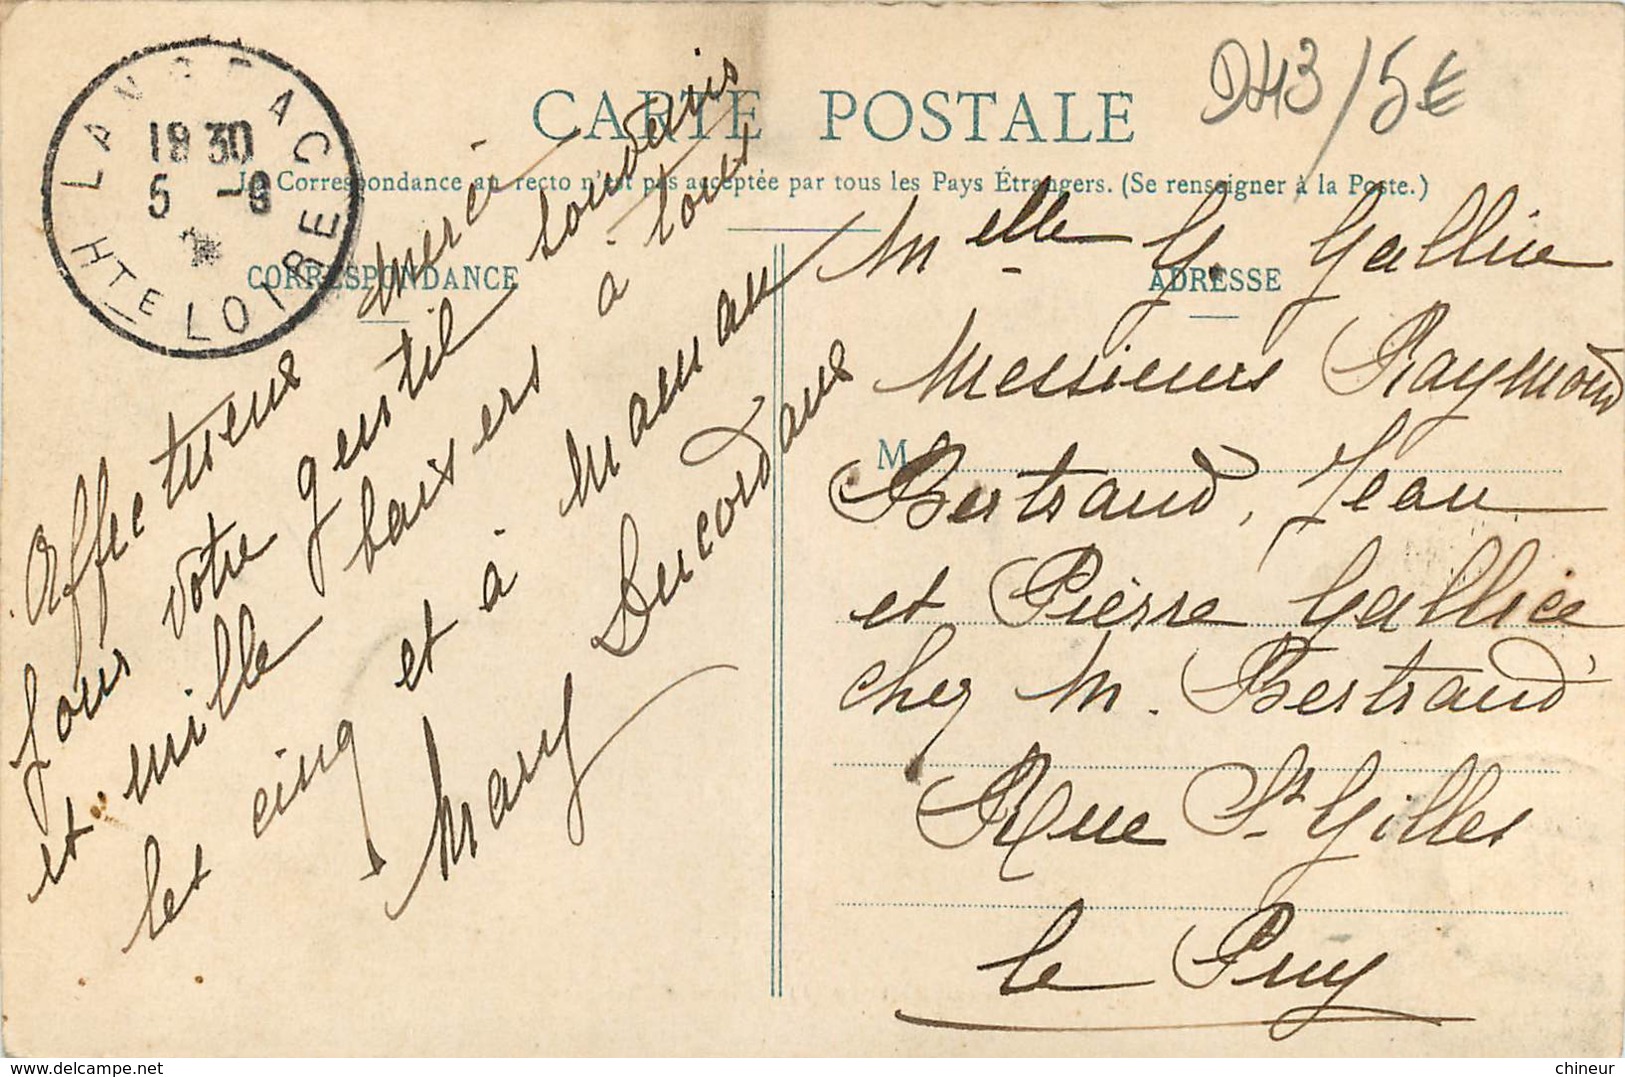 CARTE POSTALE
D43/5€
La Correspondance au recto n'est pas acceptée par tous les Pays Étrangers. (Se renseigner à la Poste.)
CORRESPONDANCE
ADRESSE
LANGEAC
18 30
5 -9
HTE LOIRE
Affectueux merci
pour votre gentil souvenir
et mille baisers à tous
les cinq et à maman
Mary Ducordaux
Melle G. Gallice
Messieurs Raymond
M
Bertrand, Jean
et Pierre Gallice
chez M. Bertrand
Rue St Gilles
le Puy
chineur